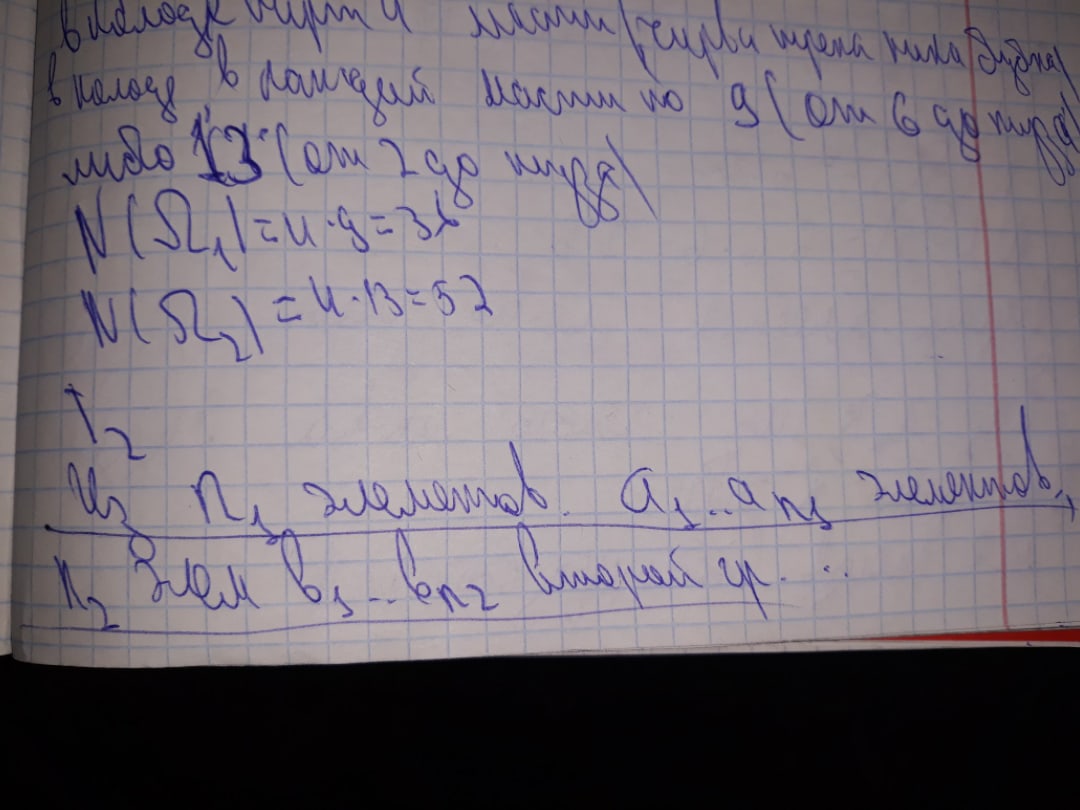 в колоде карт 4 масти (черви трефа пика бубна)
в колоде в каждой масти по 9 (от 6 до туза)
либо 13 (от 2 до туза)
N(Ω₁) = 4·9 = 36
N(Ω₂) = 4·13 = 52
T₂
Из n₁ элементов a₁..aₙ₁ элементов,
n₂ элем в₁..вₙ₂ второй гр...